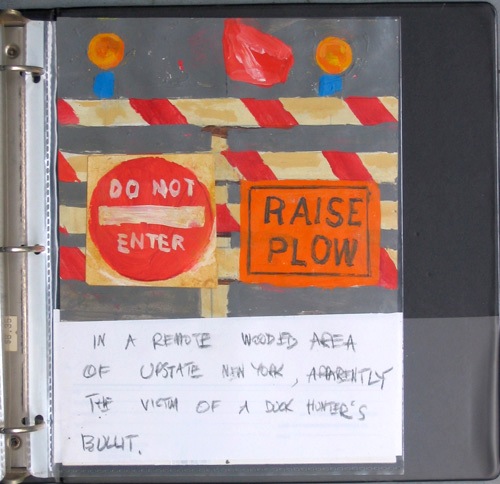 DO NOT
ENTER
RAISE
PLOW
IN A REMOTE WOODED AREA
OF UPSTATE NEW YORK, APPARENTLY
THE VICTIM OF A DUCK HUNTER'S
BULLIT.